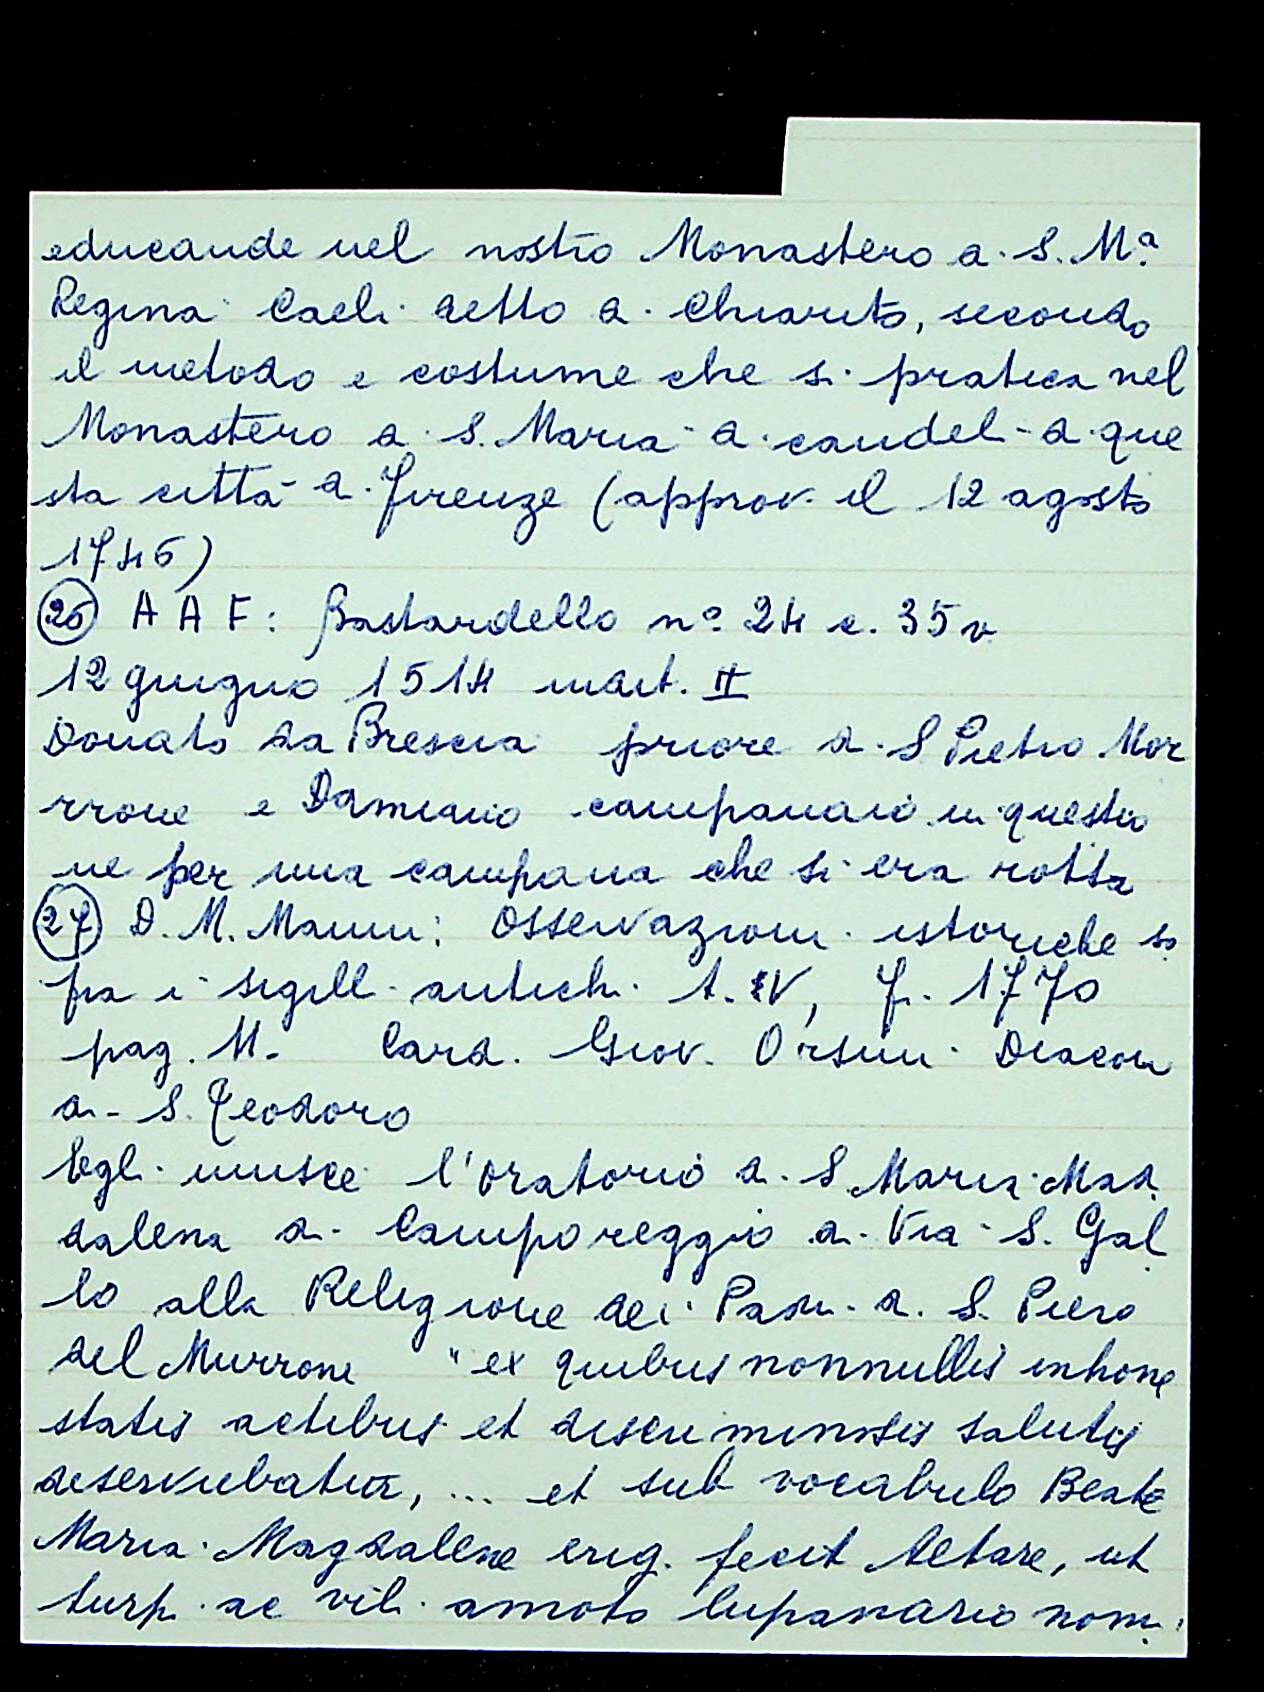 educande nel nostro Monastero di S. Mª
Regina Caeli detto di Chiarito, secondo
il metodo e costume che si pratica nel
Monastero di S. Maria di Candeli di que
sta città di Firenze (approv. il 12 agosto
1746)
(26) A A F: Bastardello nº 24 c. 35v
12 giugno 1514 mart. II
Donato da Brescia priore di S Pietro Mor
rrone e Damiano campanaio in questio
ne per una campana che si era rotta
(27) D. M. Manni: Osservazioni istoriche so
pra i sigilli antichi t. IV, F. 1770
pag. 11- Card. Giov. Orsini Diacono
di S. Teodoro
Egli unisce l'oratorio di S Maria Mad
dalena di Camporeggio di Via S. Gal
lo alla Religione dei Padri di S. Piero
del Murrone "ex quibus nonnullis inhone
statis actibus et discriminosis salutis
deserviebatur, ... et sub vocabulo Beate
Maria Magdalene erig. fecit Altare, ut
turpi ac vili amoto lupanario nomi